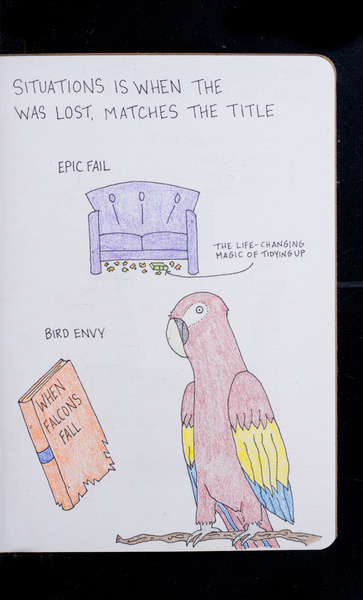 SITUATIONS IS WHEN THE
WAS LOST, MATCHES THE TITLE
EPIC FAIL
THE LIFE-CHANGING
MAGIC OF TIDYING UP
BIRD ENVY
WHEN
FALCONS
FALL